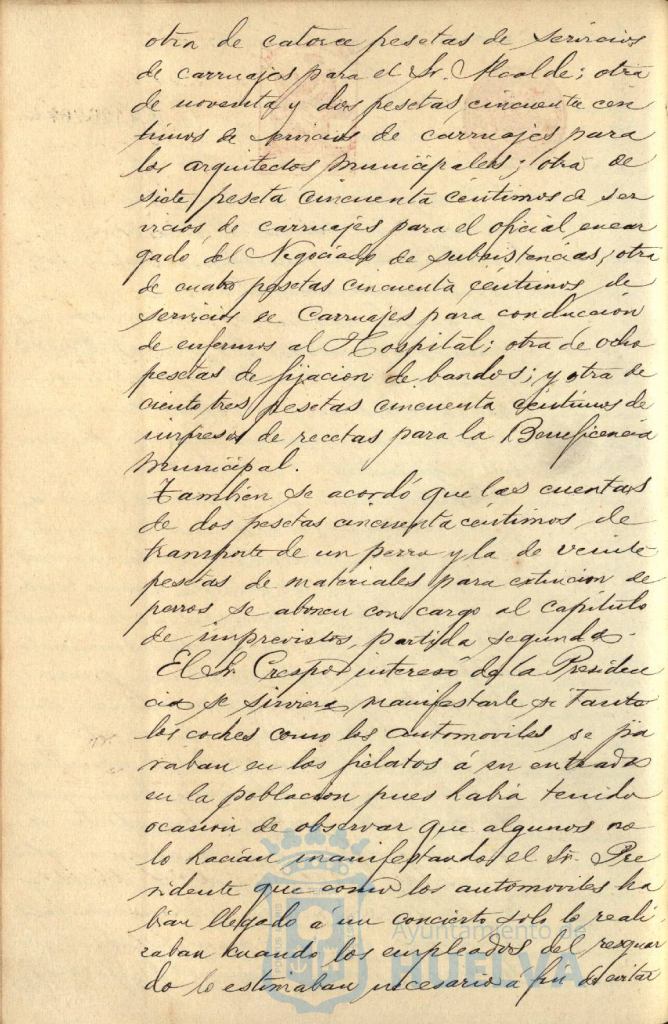 otra de catorce pesetas de servicios
de carruajes para el Sr. Alcalde; otra
de noventa y dos pesetas cincuenta cen
timos de servicios de carruajes para
los arquitectos municipales; otra de
siete peseta cincuenta centimos de ser
vicios de carruajes para el oficial encar
gado del Negociado de subsistencias; otra
de cuatro pesetas cincuenta céntimos de
servicios de Carruajes para conducción
de enfermos al Hospital; otra de ocho
pesetas de fijacion de bandos; y otra de
ciento tres pesetas cincuenta centimos de
impresos de recetas para la Beneficencia
Municipal.
Tambien se acordó que las cuentas
de dos pesetas cincuenta céntimos de
transporte de un perro y la de veinte
pesetas de materiales para extincion de
perros se abonen con cargo al capítulo
de imprevistos, partida segunda.
El Sr. Crespo interesó de la Presiden
cia se sirviera manifestarle si tanto
los coches como los automoviles se pa
raban en los fielatos á su entrada
en la poblacion pues habia tenido
ocasion de observar que algunos no
lo hacían manifestando el Sr. Pre
sidente que como los automoviles ha
bian llegado a un concierto solo lo reali
zaban cuando los empleados del resguar
do lo estimaban necesario á fin de evitar
Ayuntamiento de
HUELVA